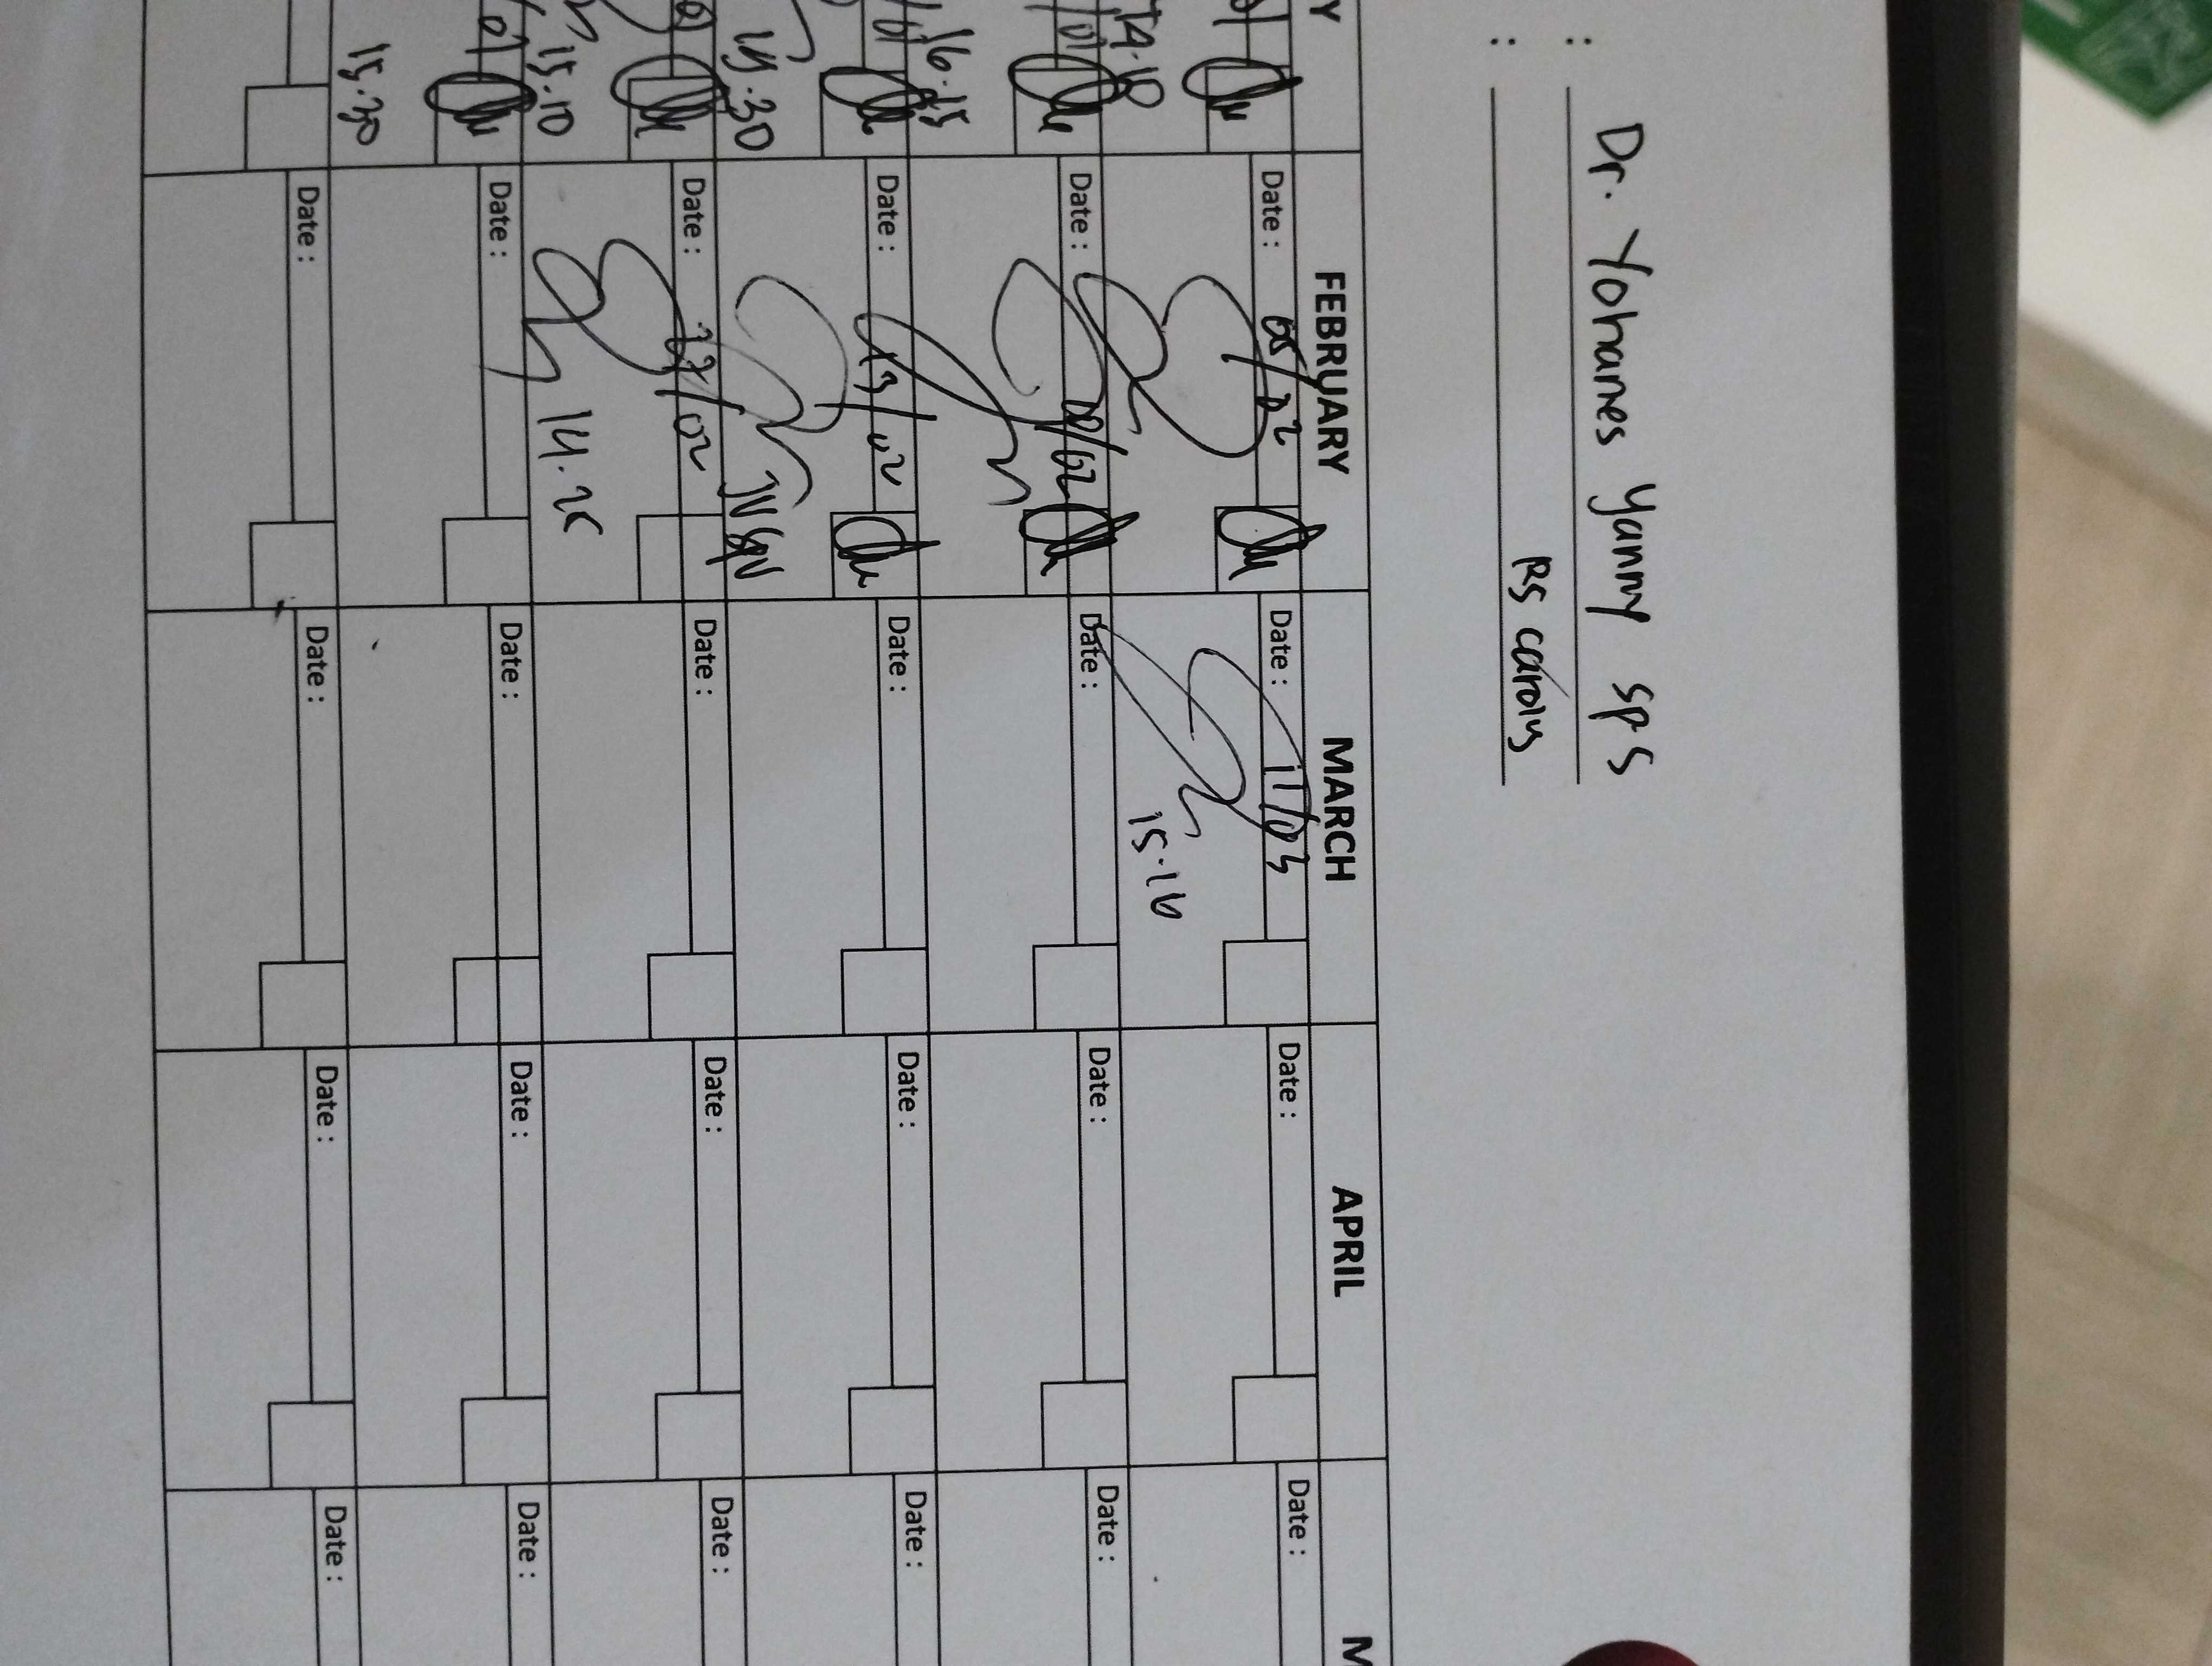 : Dr. Yohanes Yanny SpS
: RS Carolus
Y FEBRUARY MARCH APRIL M
Date : 05/02 Date : 11/03 Date : Date :
14.10 15.16
Date : Date : Date : Date :
16.15
Date : 19/02 Date : Date : Date :
15.30
Date : /02 Date : Date : Date :
15.10 14.25
Date : Date : Date : Date :
15.30
Date : Date : Date : Date :